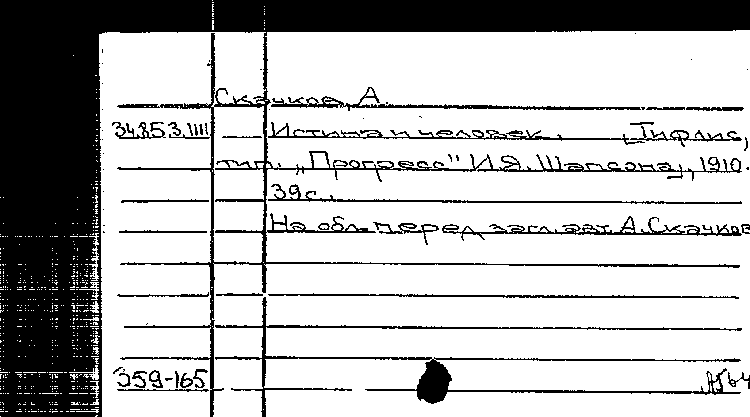 Скачков, А.
34.853.1111 Истина и человек. [Тифлис,
тип. „Прогресс" И.Я. Шапсона], 1910.
39 с.
На обл. перед загл. авт. А. Скачков
359-165